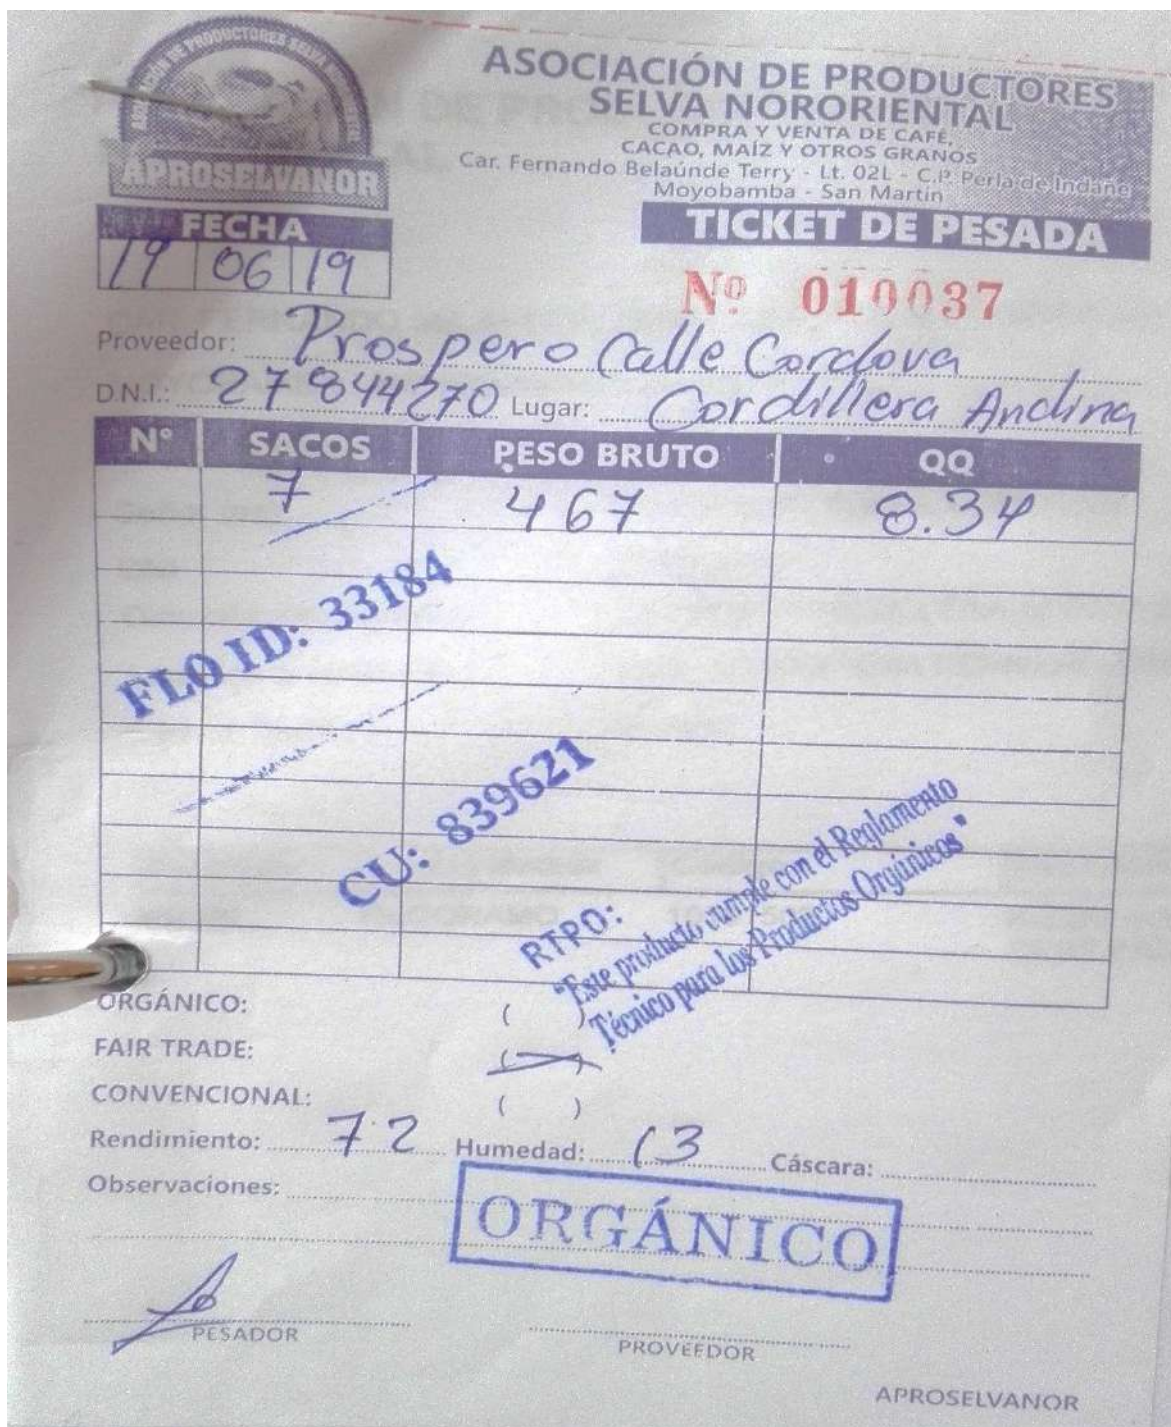 ASOCIACIÓN DE PRODUCTORES SELVA NORORIENTAL
APROSELVANOR
ASOCIACIÓN DE PRODUCTORES
SELVA NORORIENTAL
COMPRA Y VENTA DE CAFÉ,
CACAO, MAÍZ Y OTROS GRANOS
Car. Fernando Belaúnde Terry - Lt. 02L - C.P. Perla de Indañe
Moyobamba - San Martín
TICKET DE PESADA
FECHA
19 06 19
Nº 010037
Proveedor: Prospero Calle Cordova
D.N.I.: 27844270 Lugar: Cordillera Andina
N° SACOS PESO BRUTO QQ
7 467 8.34
FLO ID: 33184
CU: 839621
RTPO:
"Este producto cumple con el Reglamento
Técnico para los Productos Orgánicos"
ORGÁNICO: ( )
FAIR TRADE: ( )
CONVENCIONAL: ( )
Rendimiento: 72 Humedad: 13 Cáscara:
Observaciones:
ORGÁNICO
PESADOR
PROVEEDOR
APROSELVANOR